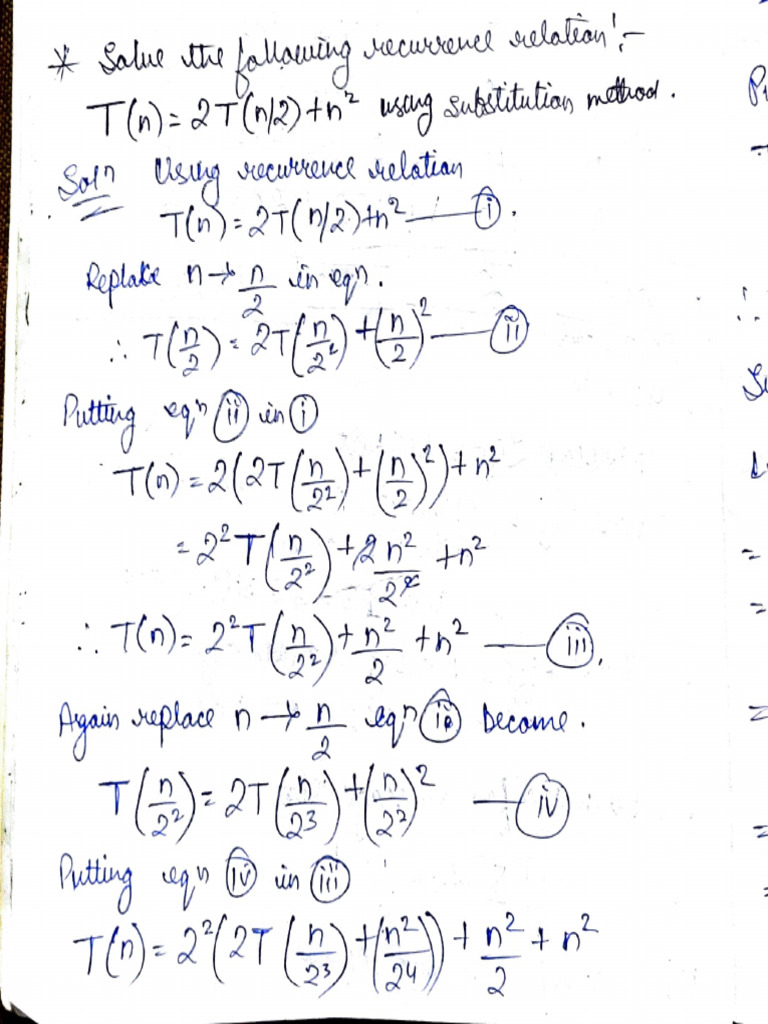 * Solve the following recurrence relation:-
T(n) = 2T(n/2) + n² using substitution method.
Solⁿ Using recurrence relation
T(n) = 2T(n/2) + n² — (i).
Replace n → n/2 in eqn.
∴ T(n/2) = 2T(n/2²) + (n/2)² — (ii)
Putting eqn (ii) in (i)
T(n) = 2(2T(n/2²) + (n/2)²) + n²
= 2²T(n/2²) + 2n²/2² + n²
∴ T(n) = 2²T(n/2²) + n²/2 + n² — (iii).
Again replace n → n/2 eqn (ii) become.
T(n/2²) = 2T(n/2³) + (n/2²)² — (iv)
Putting eqn (iv) in (iii)
T(n) = 2²(2T(n/2³) + (n²/2⁴)) + n²/2 + n²